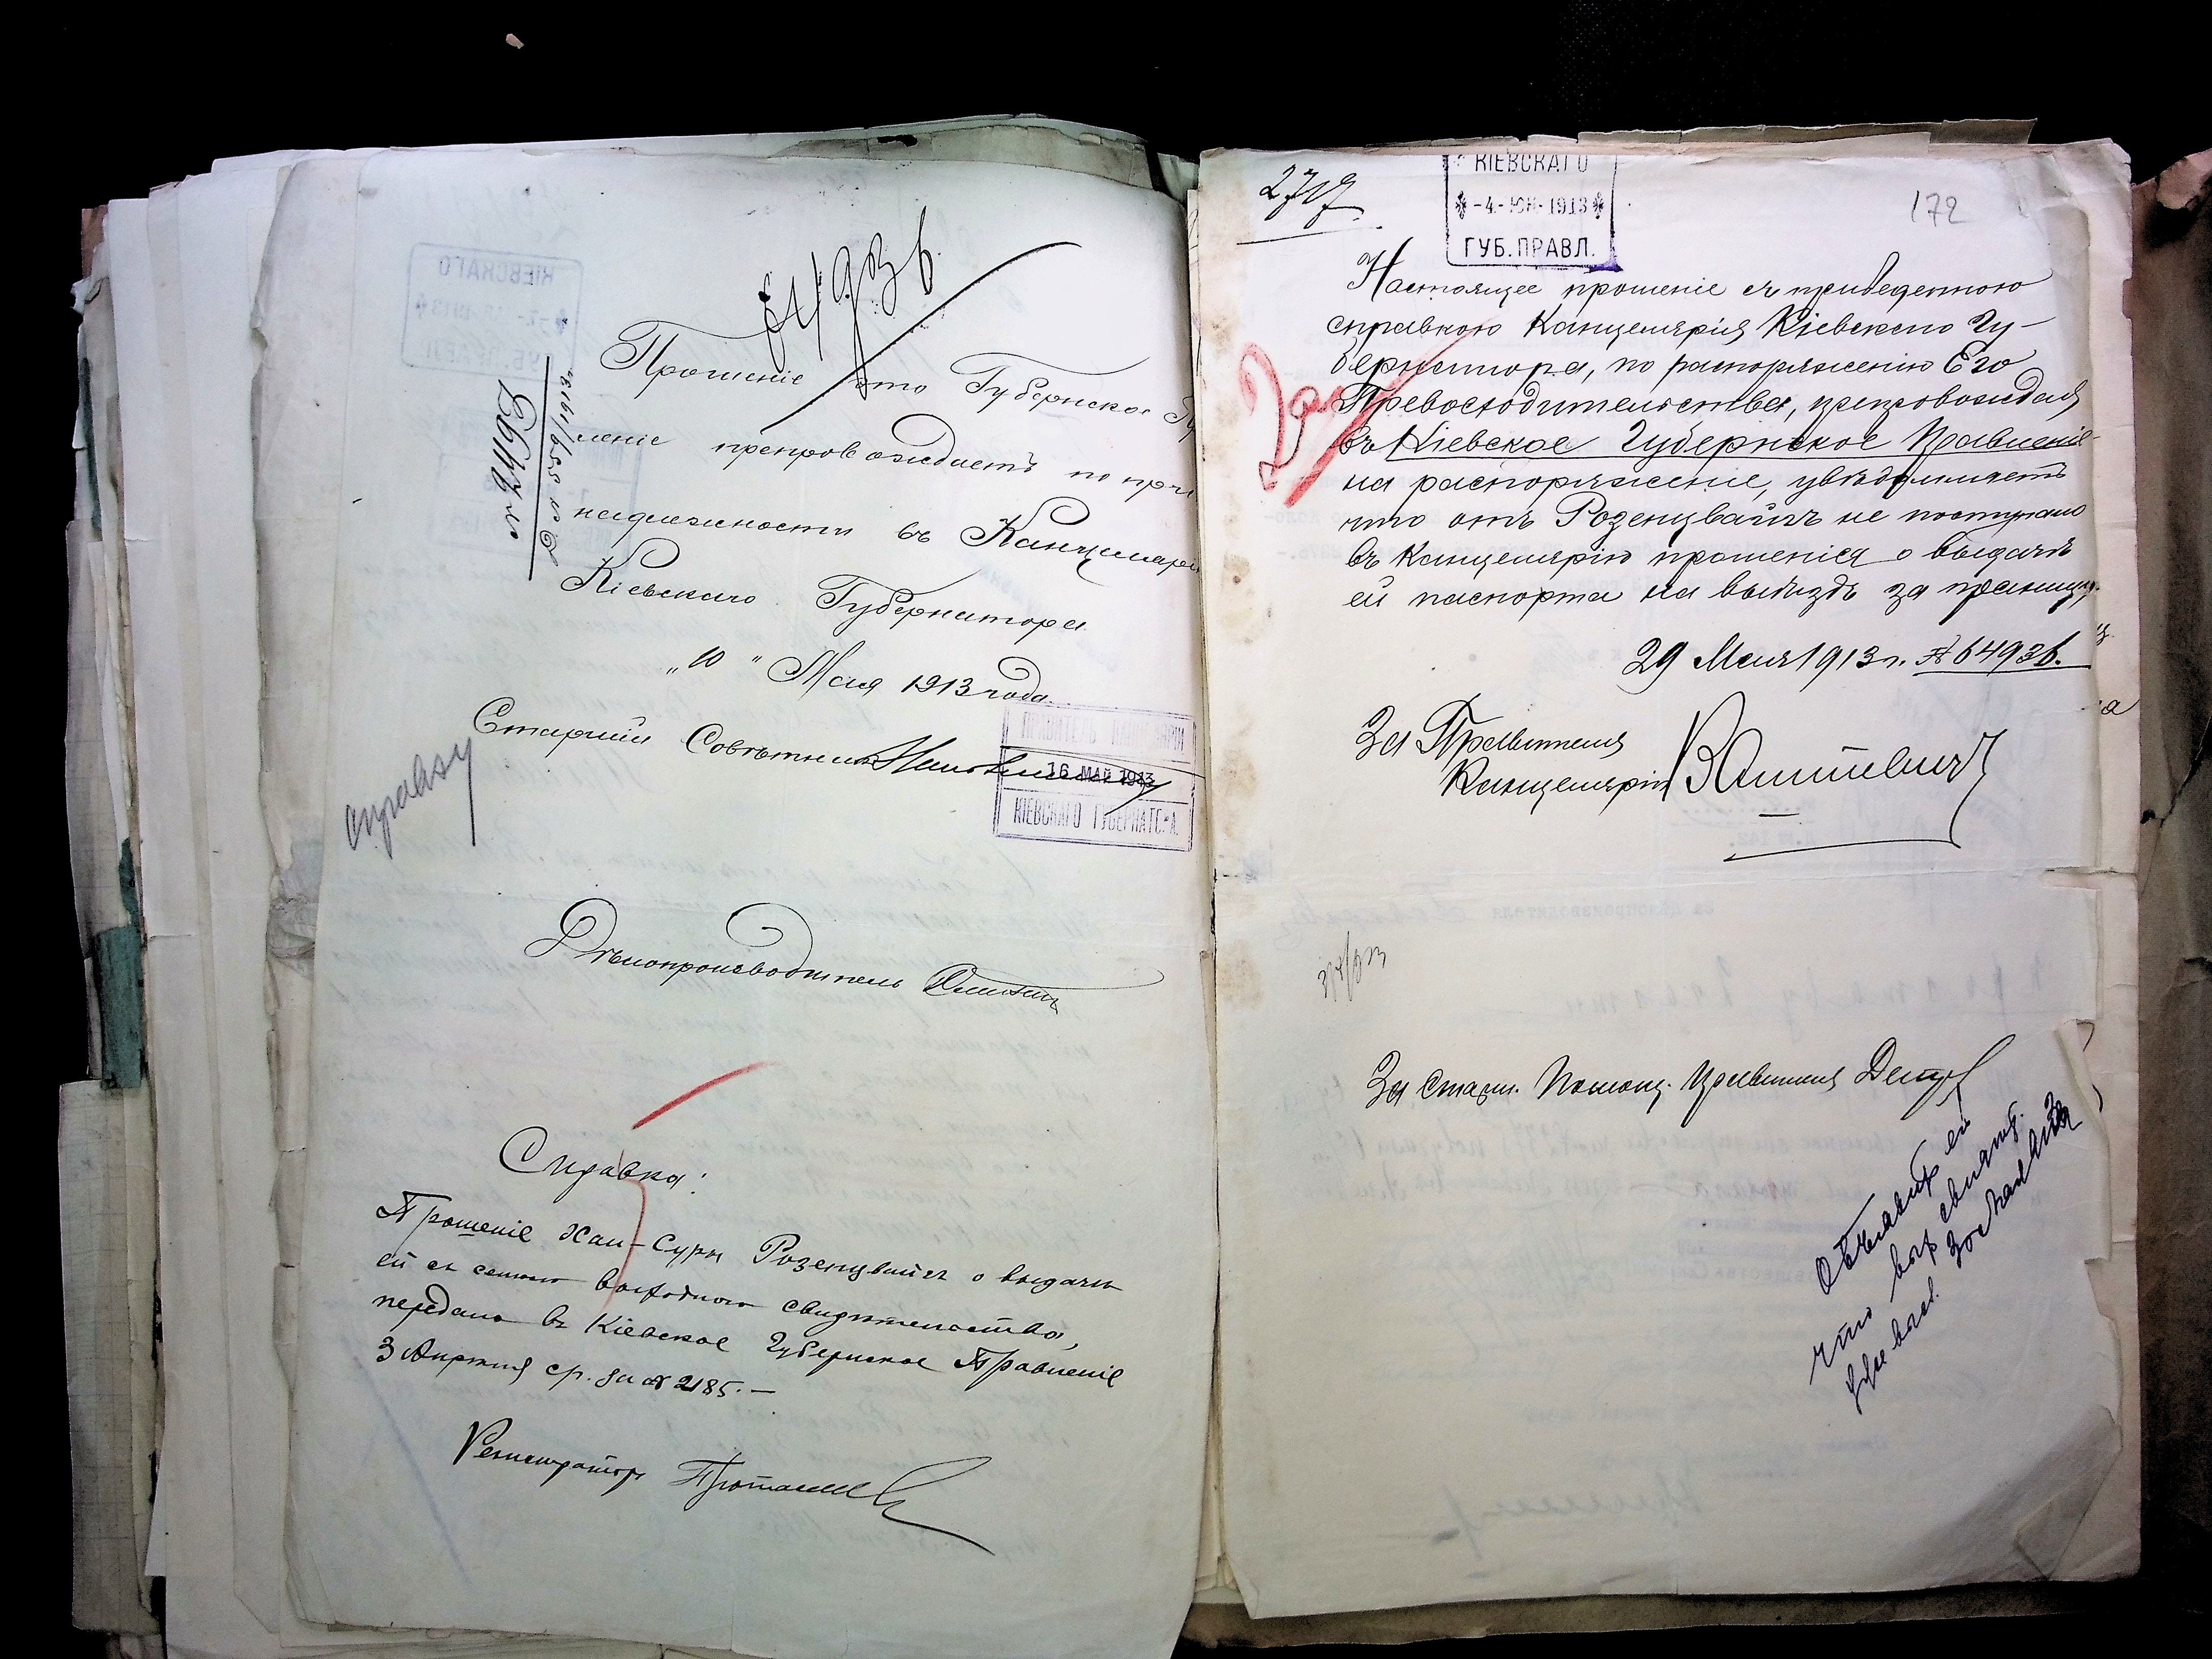 64936
Прошеніе это Губернское
леніе препровождаетъ по при
надлежности въ Канцелярі
Кіевскаго Губернатора
„10" Мая 1913 года.
Старшій Совѣтникъ
16 МАЙ 1913
КІЕВСКАГО ГУБЕРНАТ-А.
справку
Дѣлопроизводитель
Справка:
Прошеніе Хаи-Суры Розенцвайгъ о выдачѣ
ей съ семьею выходного свидѣтельства,
передано въ Кіевское Губернское Правленіе
3 Апрѣля с.г. за № 2185.—
Регистраторъ
2717
КІЕВСКАГО
-4.-ЮН-1913
ГУБ.ПРАВЛ.
172
Настоящее прошеніе съ приведенною
справкою Канцелярія Кіевскаго Гу-
бернатора, по распоряженію Его
Превосходительства, препровождая
въ Кіевское Губернское Правленіе
на распоряженіе, увѣдомляетъ
что отъ Розенцвайгъ не поступало
въ Канцелярію прошенія о выдачѣ
ей паспорта на выѣздъ за границу.
29 Мая 1913 г. № 64936.
За Правителя
Канцеляріи
За Старш. Помощ. Правителя
Объявить ей
что вых. свидѣт.